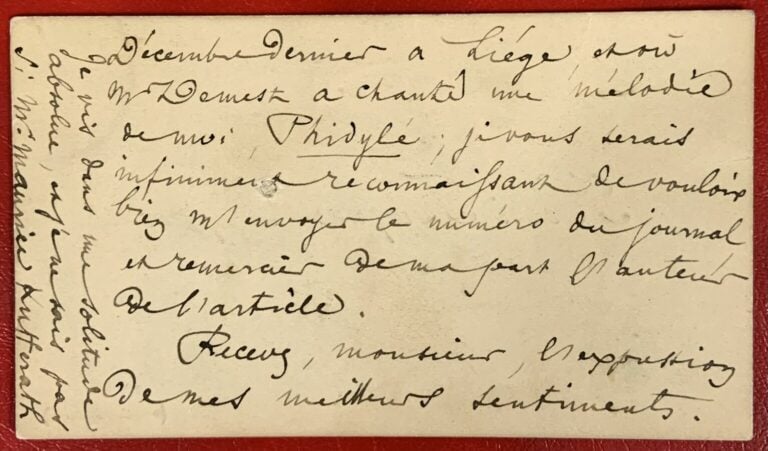 Décembre dernier a Liége, et où
Mr Demest a chanté une mélodie
de moi, Phidylé, je vous serais
infiniment reconnaissant de vouloir
bien m'envoyer le numéro du journal
et remercier de ma part l'auteur
de l'article.
Recevez, monsieur, l'expression
de mes meilleurs sentiments.
Je vis dans une solitude
absolue, et je ne sais pas
si Mr. Maurice Kufferath